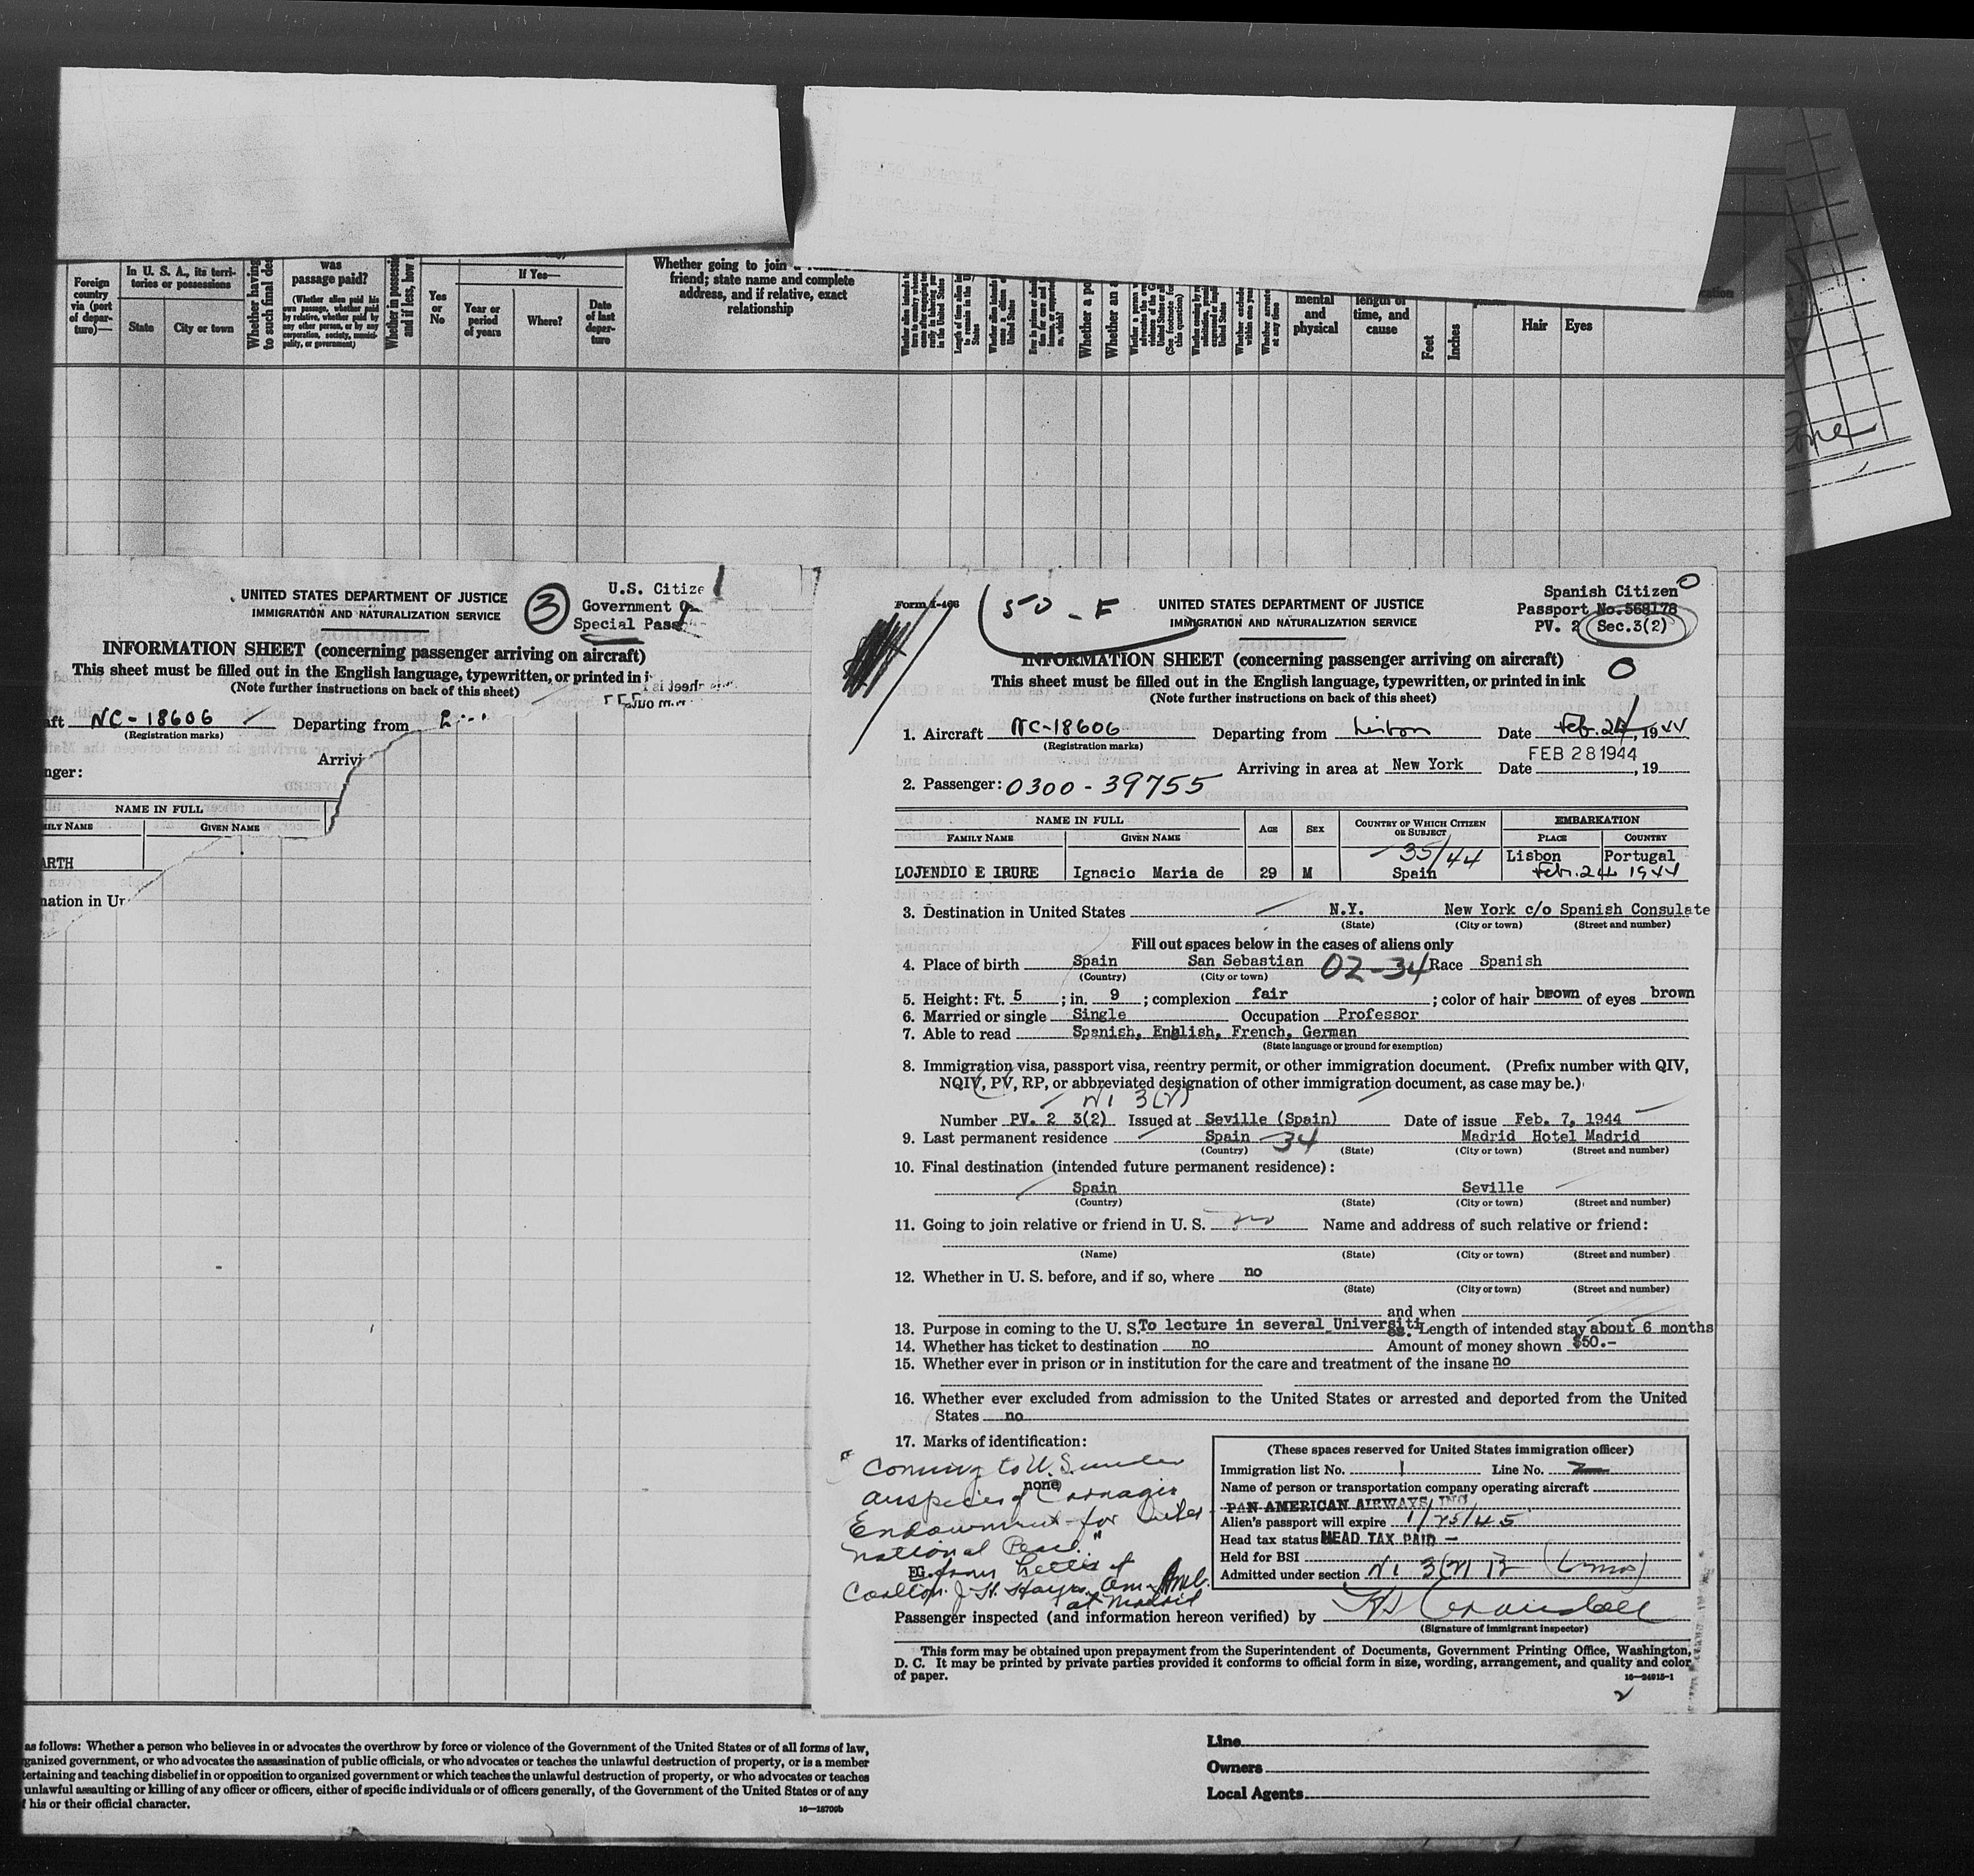 Foreign country via (port of departure)—
In U. S. A., its territories or possessions
State
City or town
Whether having
to such final des
was passage paid?
(Whether alien paid his own passage, whether paid by relative, whether paid by any other person, or by any corporation, society, municipality, or government)
Whether in possessi
and if less, how
Yes or No
If Yes—
Year or period of years
Where?
Date of last departure
Whether going to join a
friend; state name and complete
address, and if relative, exact
relationship
mental and physical
length of time, and cause
Feet
Inches
Hair
Eyes
UNITED STATES DEPARTMENT OF JUSTICE
IMMIGRATION AND NATURALIZATION SERVICE
3
U.S. Citize
Government
Special Pass
INFORMATION SHEET (concerning passenger arriving on aircraft)
This sheet must be filled out in the English language, typewritten, or printed in i
(Note further instructions on back of this sheet)
aft NC-18606 Departing from
(Registration marks)
Arrivi
nger:
NAME IN FULL
ILY NAME GIVEN NAME
ARTH
nation in Un
Form I-466
50 - F
UNITED STATES DEPARTMENT OF JUSTICE
IMMIGRATION AND NATURALIZATION SERVICE
Spanish Citizen
Passport No.568178
PV. 2 Sec.3(2)
INFORMATION SHEET (concerning passenger arriving on aircraft)
This sheet must be filled out in the English language, typewritten, or printed in ink
(Note further instructions on back of this sheet)
1. Aircraft NC-18606 Departing from Lisbon Date Feb. 24, 1944
(Registration marks)
FEB 28 1944
Arriving in area at New York Date , 19
2. Passenger: 0300-39755
NAME IN FULL AGE SEX COUNTRY OF WHICH CITIZEN OR SUBJECT EMBARKATION
FAMILY NAME GIVEN NAME PLACE COUNTRY
35/44 Lisbon Portugal
LOJENDIO E IRURE Ignacio Maria de 29 M Spain Febr. 24 1944
3. Destination in United States N.Y. New York c/o Spanish Consulate
(State) (City or town) (Street and number)
Fill out spaces below in the cases of aliens only
4. Place of birth Spain San Sebastian 02-34 Race Spanish
(Country) (City or town)
5. Height: Ft. 5 ; in. 9 ; complexion fair ; color of hair brown of eyes brown
6. Married or single Single Occupation Professor
7. Able to read Spanish, English, French, German
(State language or ground for exemption)
8. Immigration visa, passport visa, reentry permit, or other immigration document. (Prefix number with QIV,
NQIV, PV, RP, or abbreviated designation of other immigration document, as case may be.)
NI 3(2)
Number PV. 2 3(2) Issued at Seville (Spain) Date of issue Feb. 7, 1944
9. Last permanent residence Spain 34 Madrid Hotel Madrid
(Country) (State) (City or town) (Street and number)
10. Final destination (intended future permanent residence):
Spain Seville
(Country) (State) (City or town) (Street and number)
11. Going to join relative or friend in U. S. no Name and address of such relative or friend:
(Name) (State) (City or town) (Street and number)
12. Whether in U. S. before, and if so, where no
(State) (City or town) (Street and number)
and when
13. Purpose in coming to the U. S. To lecture in several Universities. Length of intended stay about 6 months
14. Whether has ticket to destination no Amount of money shown $50.-
15. Whether ever in prison or in institution for the care and treatment of the insane no
16. Whether ever excluded from admission to the United States or arrested and deported from the United
States no
17. Marks of identification:
none
"Coming to U.S. under
auspices of Carnagie
Endowment for Inter-
national Peace"
EG. from Letter of
Carlton J. H. Hayes, Am. Amb.
at Madrid
(These spaces reserved for United States immigration officer)
Immigration list No. 1 Line No. 2
Name of person or transportation company operating aircraft
PAN AMERICAN AIRWAYS, INC
Alien's passport will expire 1/25/45
Head tax status HEAD TAX PAID -
Held for BSI
Admitted under section NI 3(2) B (6 mos)
Passenger inspected (and information hereon verified) by
(Signature of immigrant inspector)
This form may be obtained upon prepayment from the Superintendent of Documents, Government Printing Office, Washington,
D. C. It may be printed by private parties provided it conforms to official form in size, wording, arrangement, and quality and color
of paper.
16—24915-1
2
as follows: Whether a person who believes in or advocates the overthrow by force or violence of the Government of the United States or of all forms of law,
ganized government, or who advocates the assassination of public officials, or who advocates or teaches the unlawful destruction of property, or is a member
tertaining and teaching disbelief in or opposition to organized government or which teaches the unlawful destruction of property, or who advocates or teaches
unlawful assaulting or killing of any officer or officers, either of specific individuals or of officers generally, of the Government of the United States or of any
f his or their official character.
16—18709b
Line
Owners
Local Agents